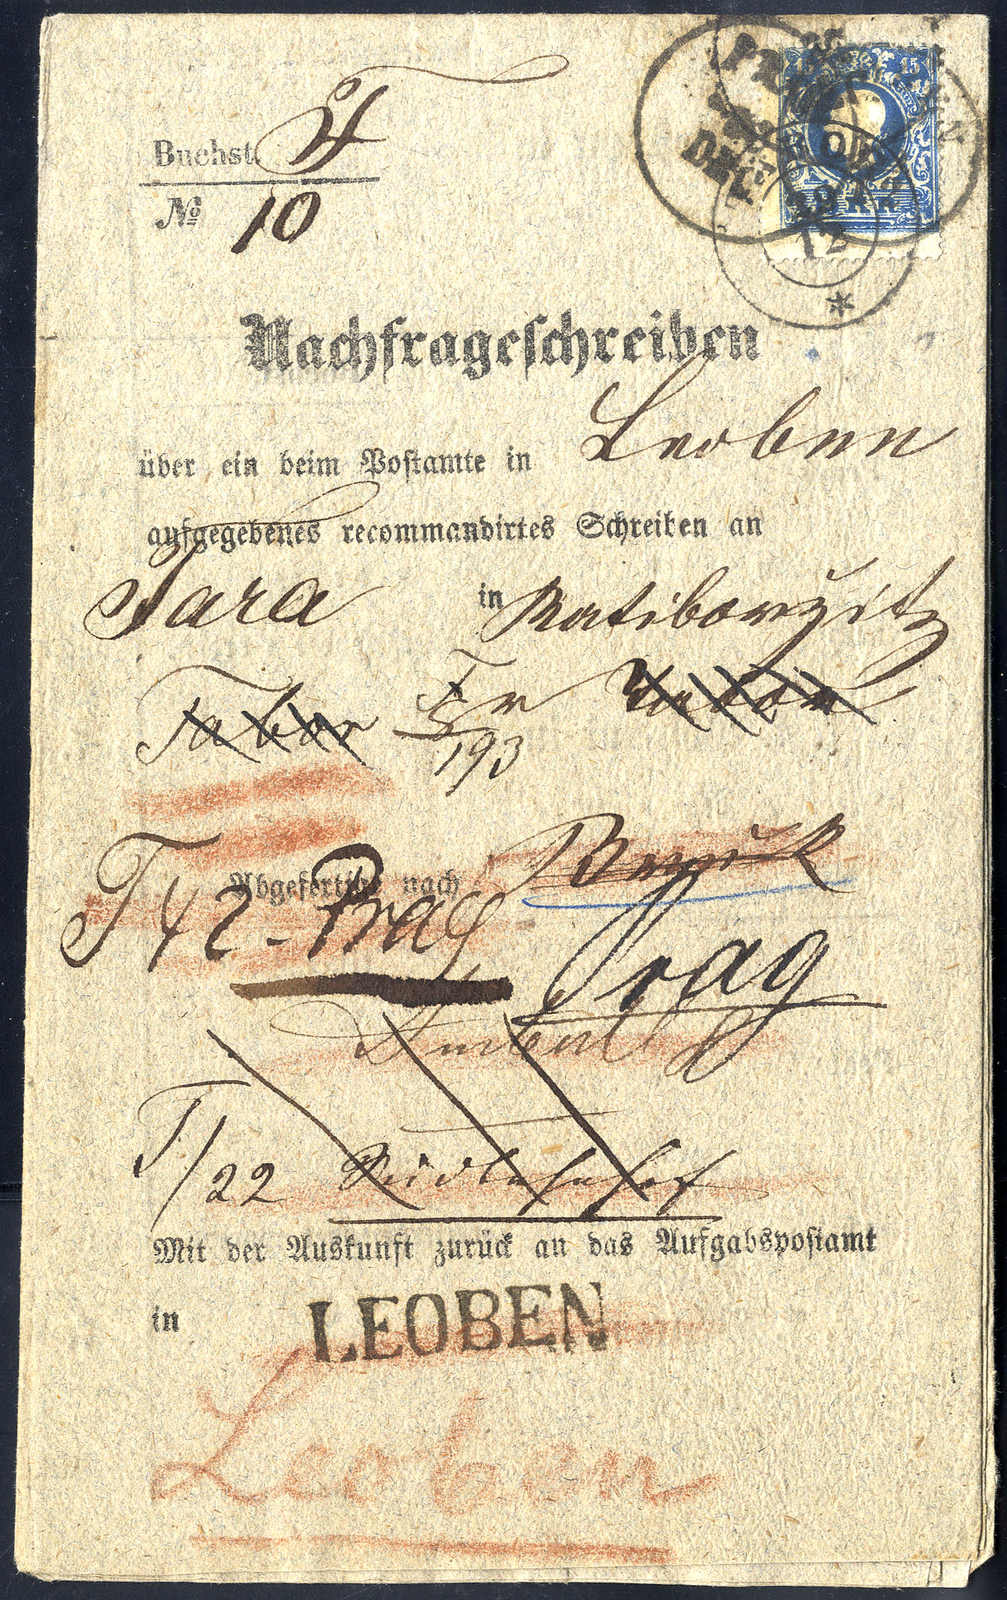 Buchst.
№ 10
Nachfrageschreiben
über ein beim Postamte in Leoben
aufgegebenes recommandirtes Schreiben an
in Ratibořzitz
Tabor
193
Abgefertigt nach Bruck
T 42 - Prag Prag
T/22 Südbahnhof
Mit der Auskunft zurück an das Aufgabspostamt
in LEOBEN
Leoben